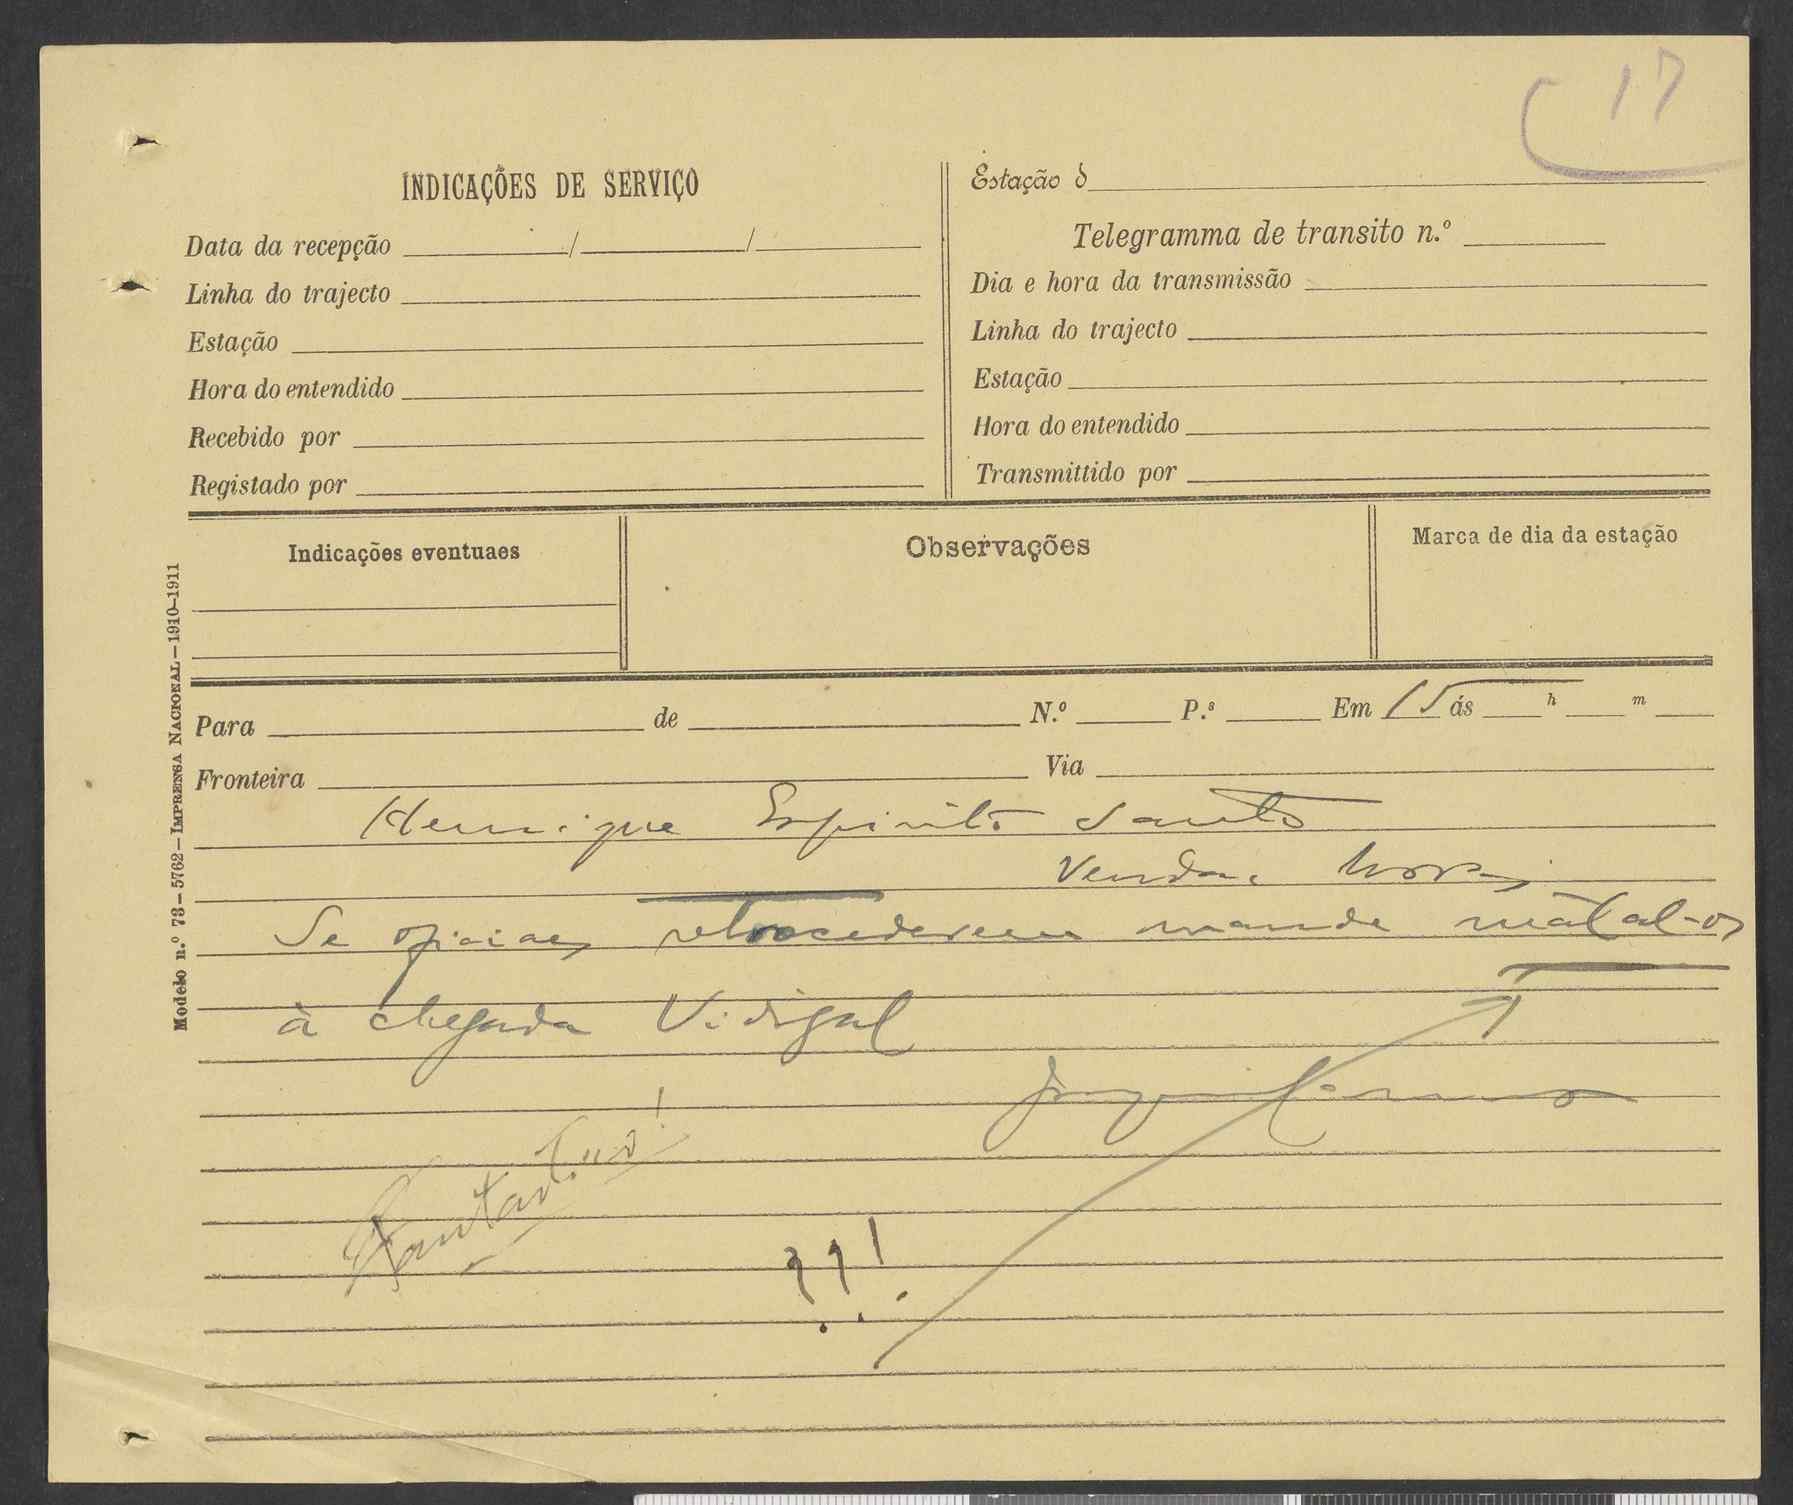 17
INDICAÇÕES DE SERVIÇO
Data da recepção / /
Linha do trajecto
Estação
Hora do entendido
Recebido por
Registado por
Estação d
Telegramma de transito n.º
Dia e hora da transmissão
Linha do trajecto
Estação
Hora do entendido
Transmittido por
Indicações eventuaes
Observações
Marca de dia da estação
Modelo n.º 73—5762—IMPRENSA NACIONAL—1910-1911
Para de N.º P.s Em 15 ás h m
Fronteira Via
Henrique Espirito Santo
Vendas
Se oficiaes retrocederem mande matal-os
à chegada Vidigal
Fantastico!
??!